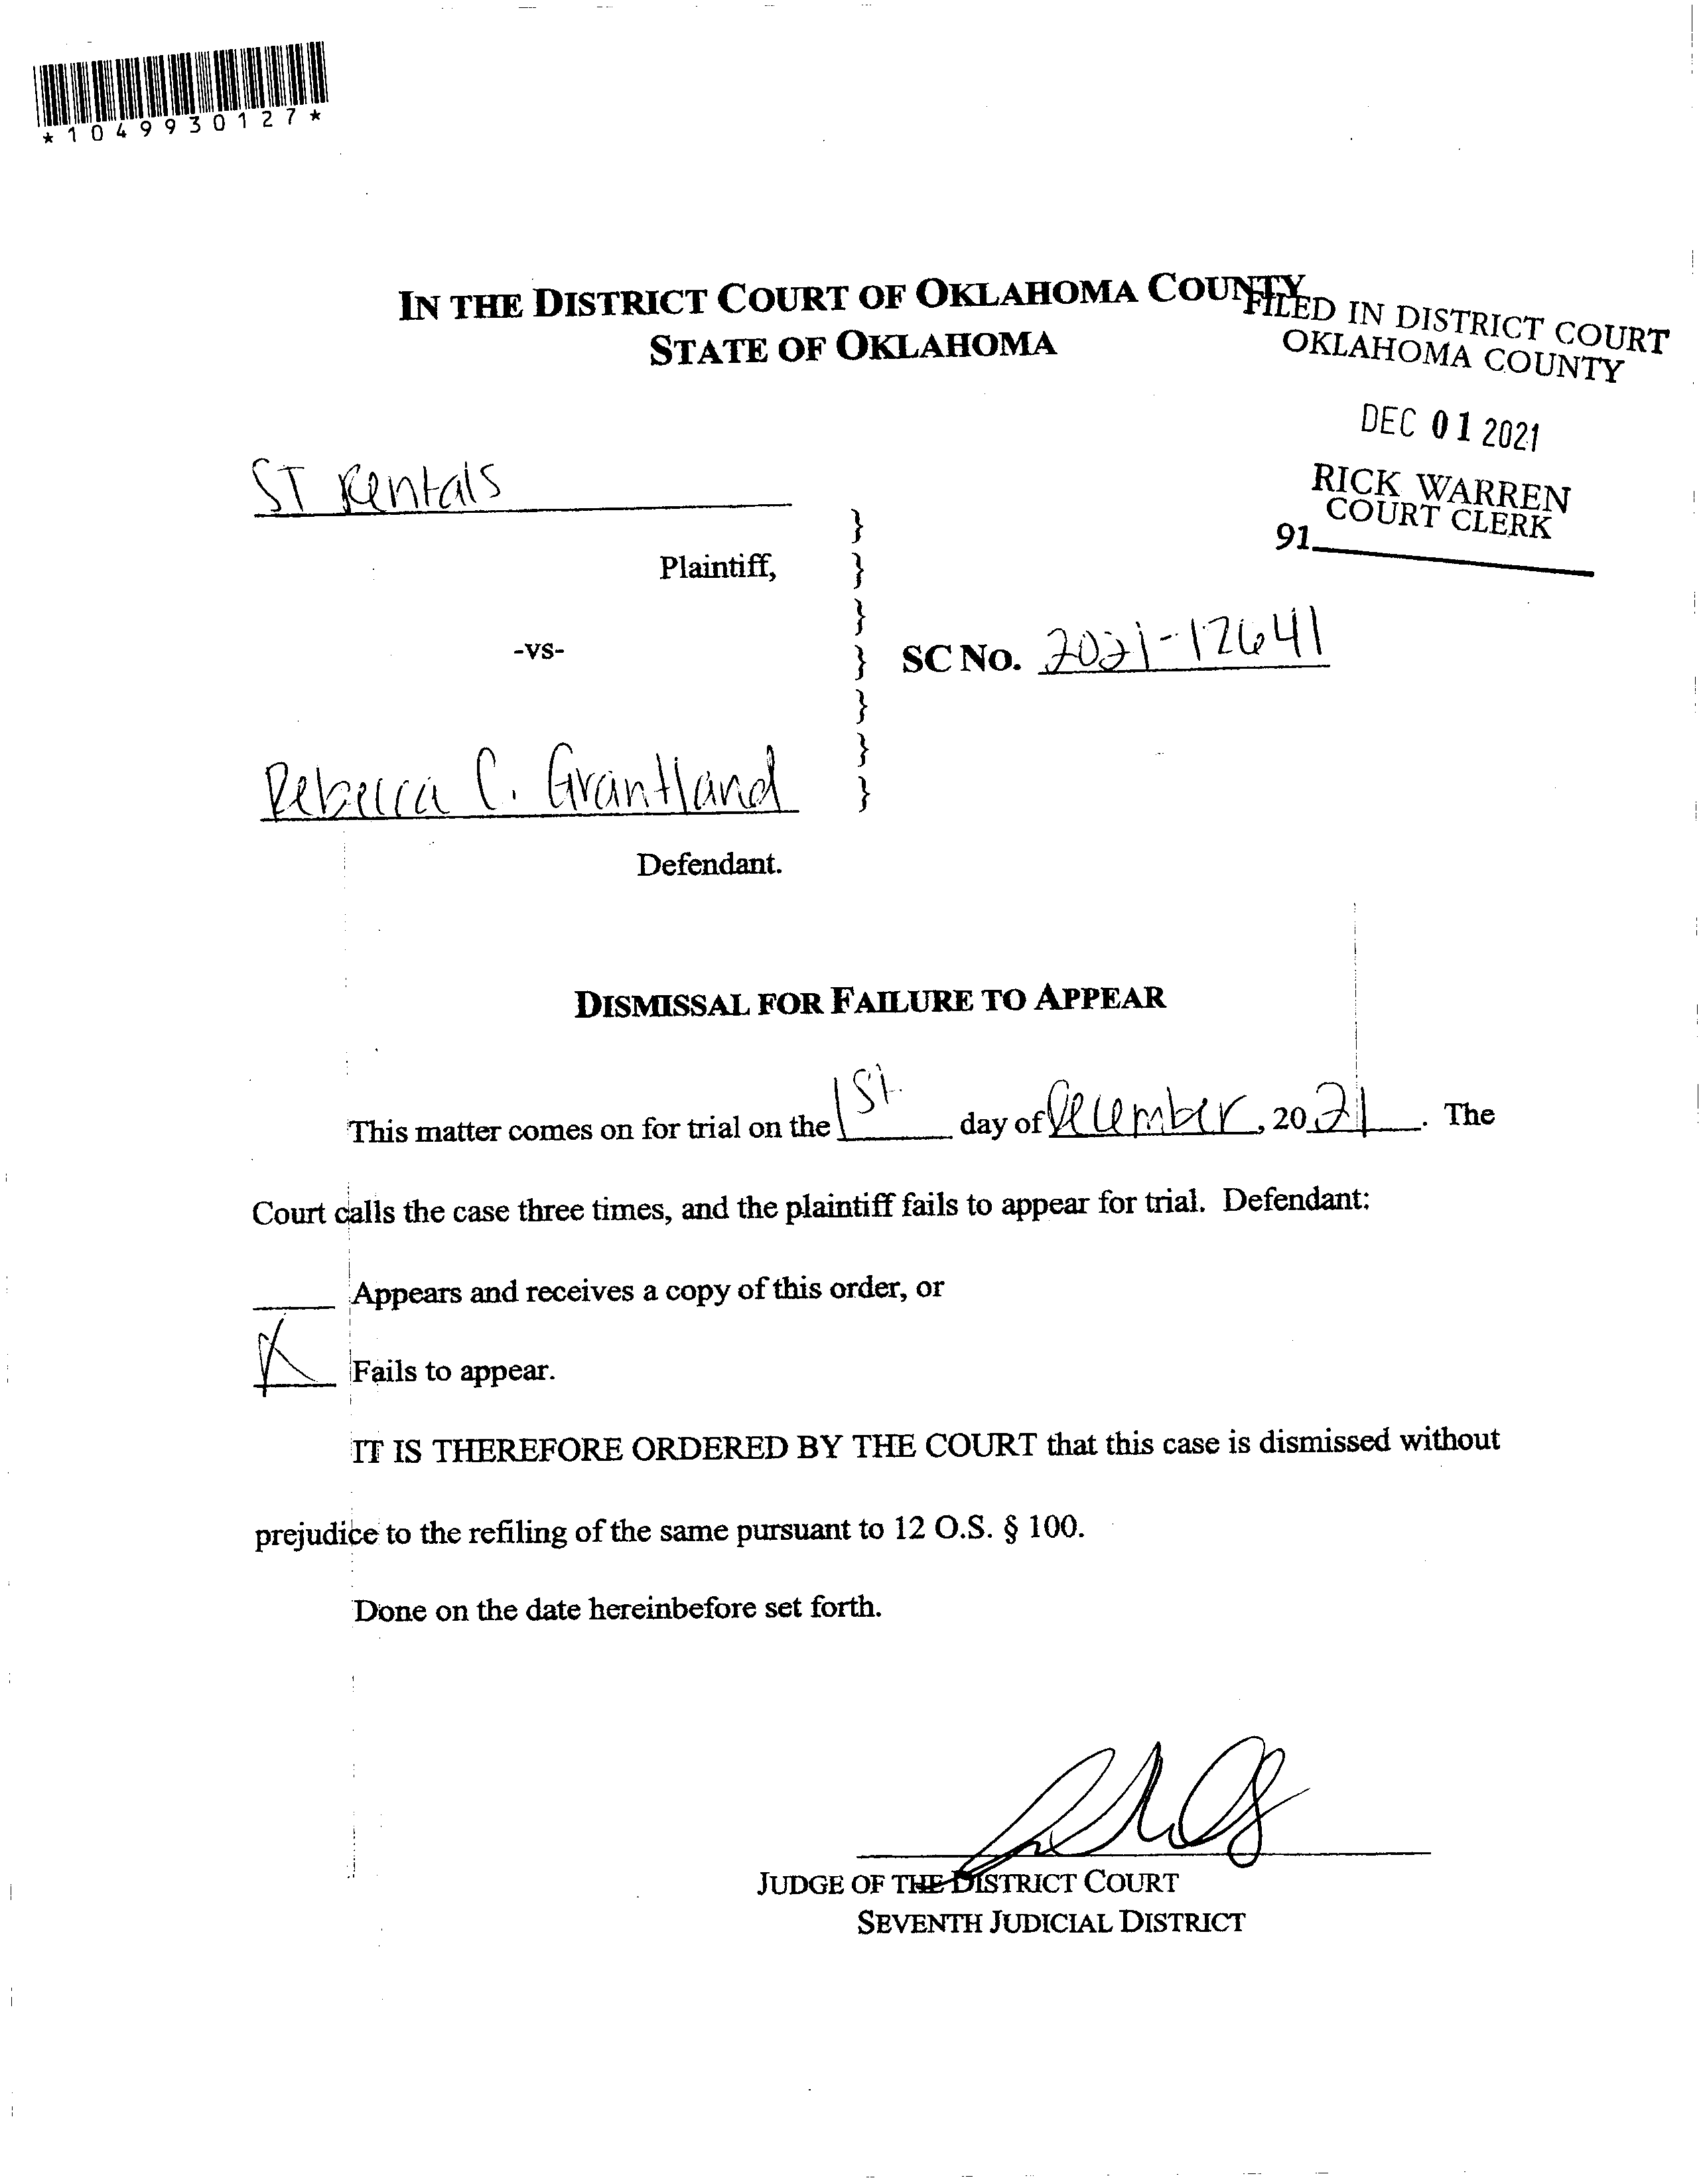 *1049930127*
IN THE DISTRICT COURT OF OKLAHOMA COUNTY
STATE OF OKLAHOMA
FILED IN DISTRICT COURT
OKLAHOMA COUNTY
DEC 01 2021
RICK WARREN
COURT CLERK
91
ST Rentals
Plaintiff,
-vs-
SC No. 2021-12641
Rebecca C. Grantland
Defendant.
}
}
}
}
}
}
}
DISMISSAL FOR FAILURE TO APPEAR
This matter comes on for trial on the 1st day of December, 2021. The
Court calls the case three times, and the plaintiff fails to appear for trial. Defendant:
Appears and receives a copy of this order, or
X Fails to appear.
IT IS THEREFORE ORDERED BY THE COURT that this case is dismissed without
prejudice to the refiling of the same pursuant to 12 O.S. § 100.
Done on the date hereinbefore set forth.
JUDGE OF THE DISTRICT COURT
SEVENTH JUDICIAL DISTRICT